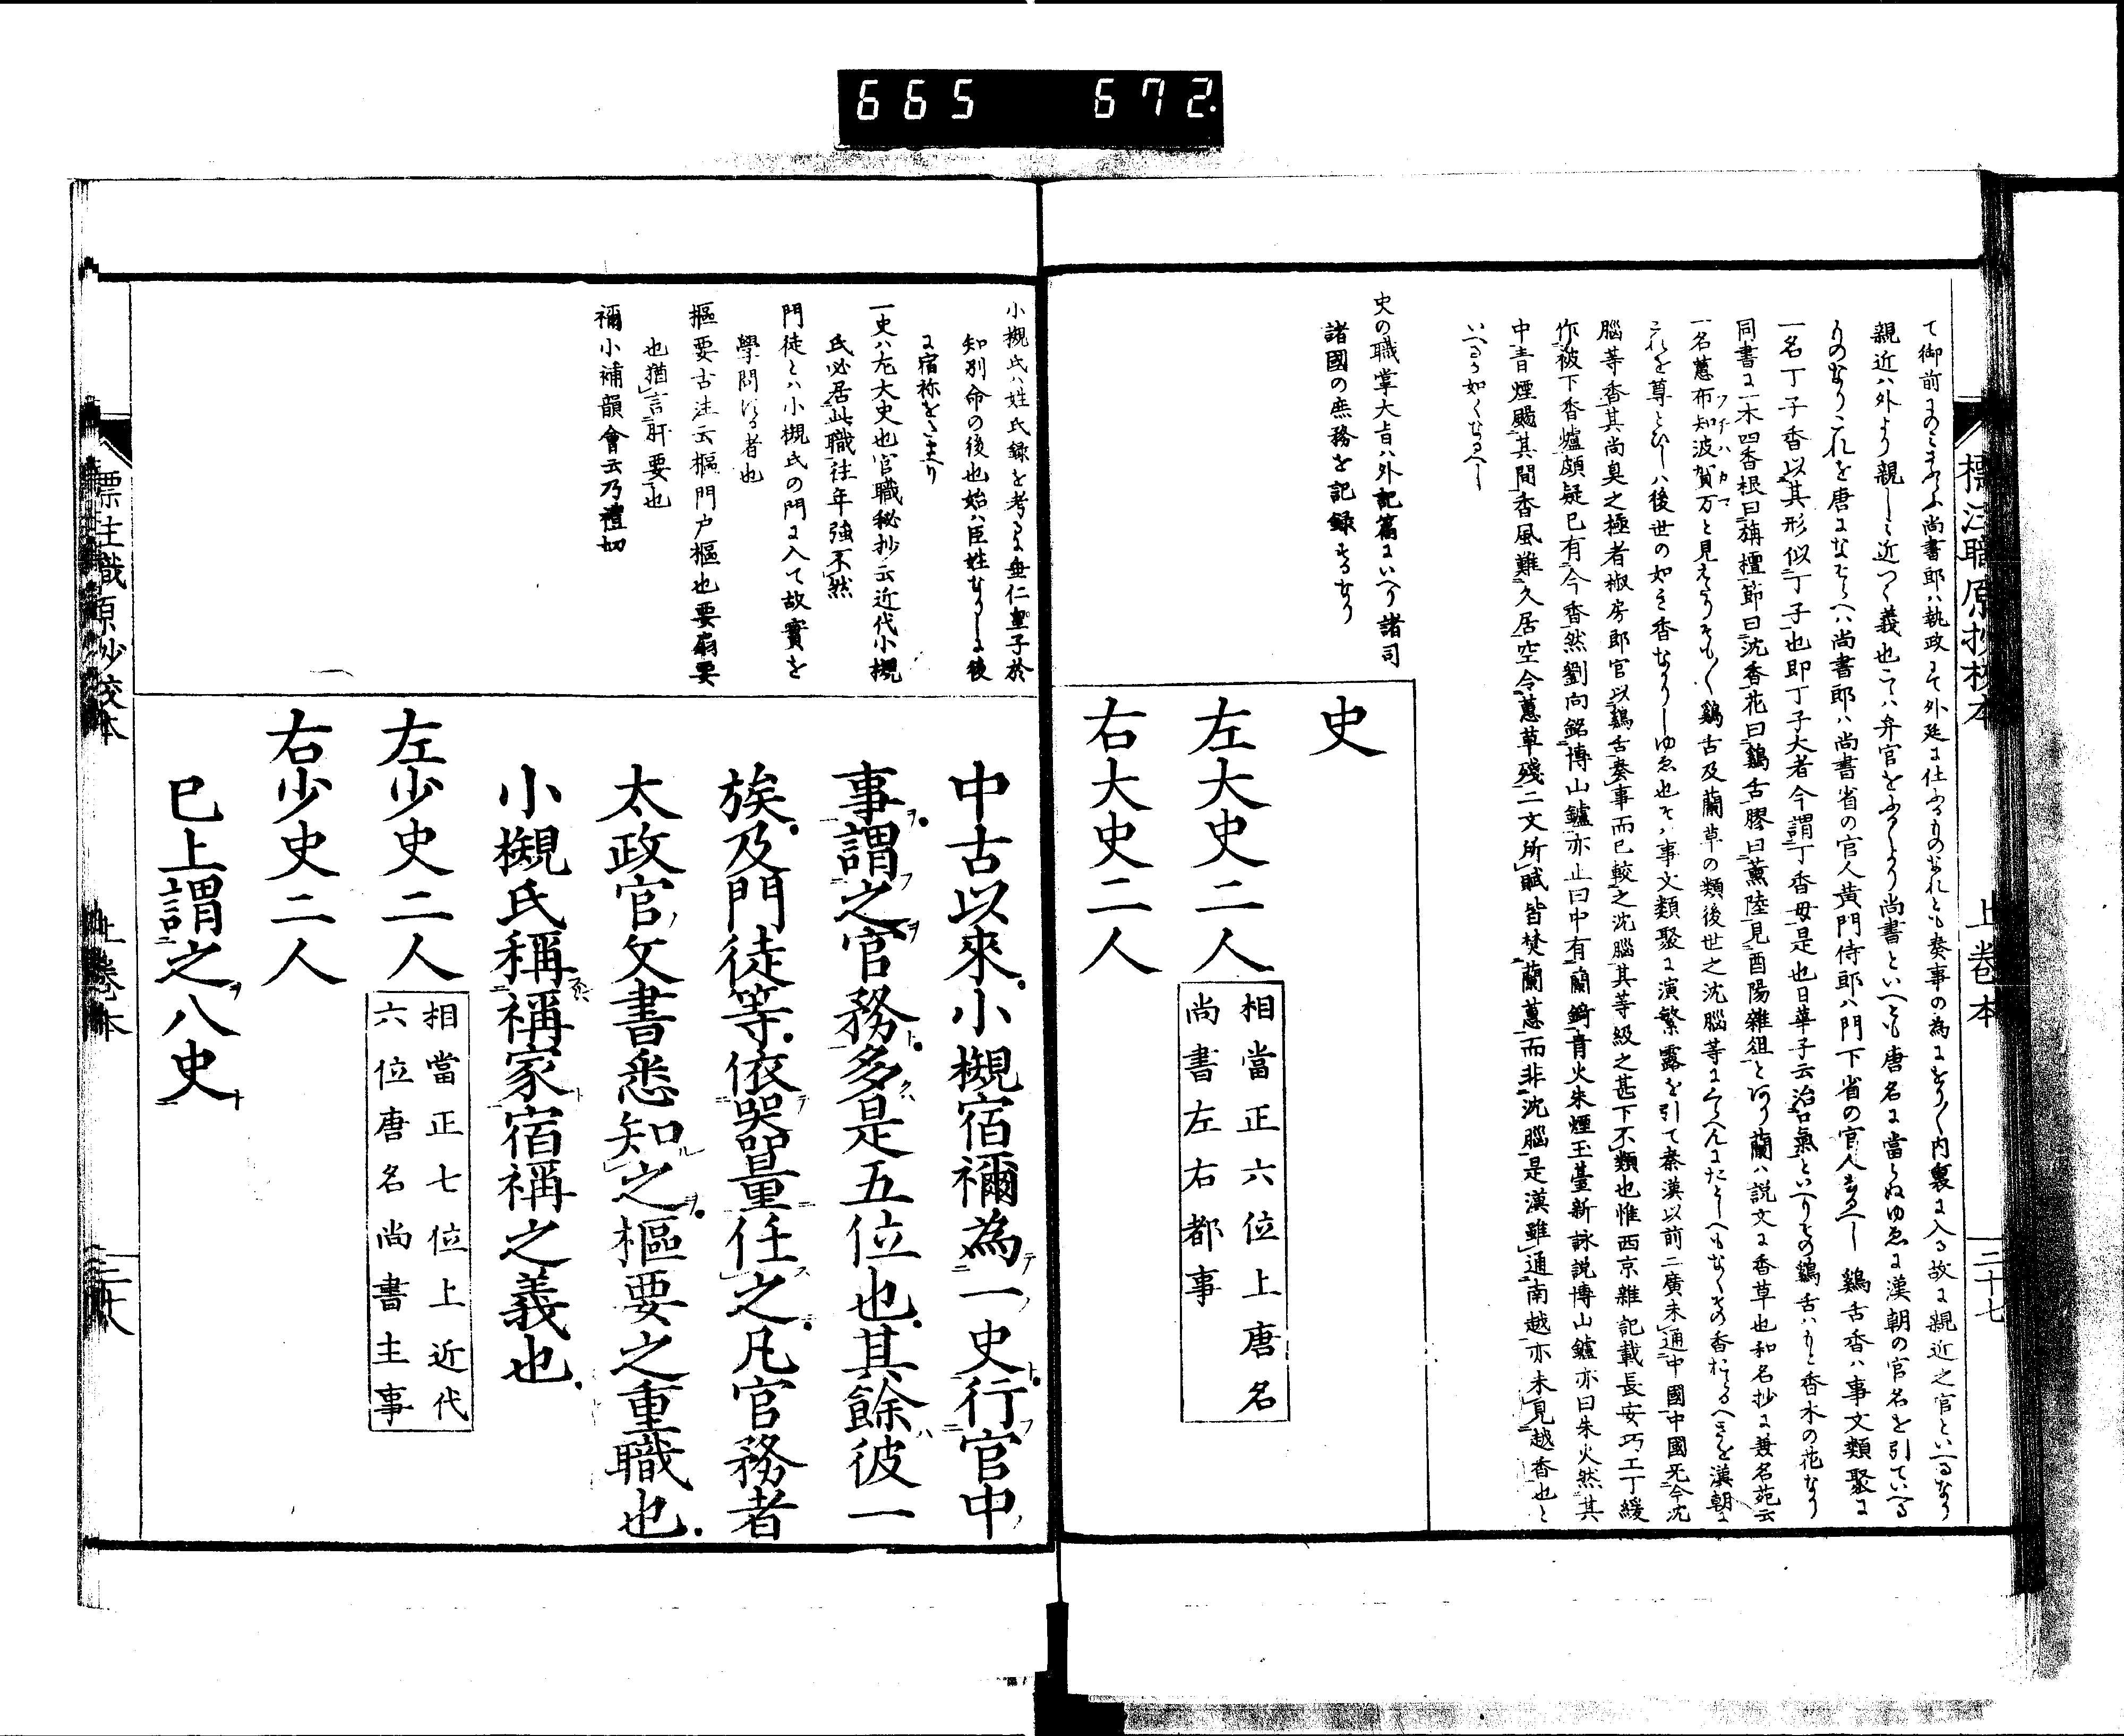 665 672
標注職原抄校本 上巻本 三十七
て御前にのみ候ふ尚書郎ハ執政にて外廷に仕ふるものなれとも奏事の為にをり〱内裏に入る故に親近之官といへるなり
親近ハ外より親しく近つく義也こヽハ弁官を尚書といへとも唐名に當らぬゆゑに漢朝の官名を引ていへる
ものなりこれを唐になそらへハ尚書郎ハ尚書省の官人黄門侍郎ハ門下省の官人なるへし 鷄舌香ハ事文類聚に
一名丁子香以其形似丁子也即丁子大者今謂丁香母是也日華子云治口氣といへりその鷄舌ハもと香木の花なり
同書に一木四香根曰旃檀節曰沈香花曰鷄舌膠曰薫陸見酉陽雜俎とあり蘭ハ説文に香草也和名抄に兼名苑云
一名蕙布知波賀万と見えたりそも〱鷄舌及蘭草の類後世之沈腦等にくらへんにたとしへもなくその香おとるへきを漢朝に
これを尊とひしハ後世の如き香なかりしゆゑ也そハ事文類聚に演繁露を引て秦漢以前二廣未通中國中國无今沈
腦等香其尚臭之極者椒房郎官以鷄舌奏事而已較之沈腦其等級之甚下不類也惟西京雜記載長安巧工丁緩
作被下香爐頗疑已有今香然劉向銘博山鑪亦止曰中有蘭錡青火朱煙玉臺新詠説博山鑪亦曰朱火然其
中青煙颺其間香風難久居空令蕙草殘二文所賦皆焚蘭蕙而非沈腦是漢雖通南越亦未見越香也と
いへるか如くなるへし
史の職掌大旨ハ外記篇にいへり諸司
諸國の庶務を記録するなり
史
左大史二人
相當正六位上唐名
尚書左右都事
右大史二人
小槻氏ハ姓氏録を考るに垂仁皇子於
知別命の後也始ハ臣姓なりしに後
に宿祢をたまへり
一史ハ左大史也官職秘抄云近代小槻
氏必居此職往年強不然
門徒とハ小槻氏の門に入て故實を
學問する者也
樞要古注云樞門户樞也要扇要
也猶言肝要也
禰小補韻會云乃禮切
中古以來小槻宿禰為一史行官中
事謂之官務多是五位也其餘彼一
族及門徒等依器量任之凡官務者
太政官文書悉知之樞要之重職也
小槻氏稱禰家宿禰之義也
左少史二人
相當正七位上近代
六位唐名尚書主事
右少史二人
已上謂之八史
標注職原抄校本 上巻本 三十八